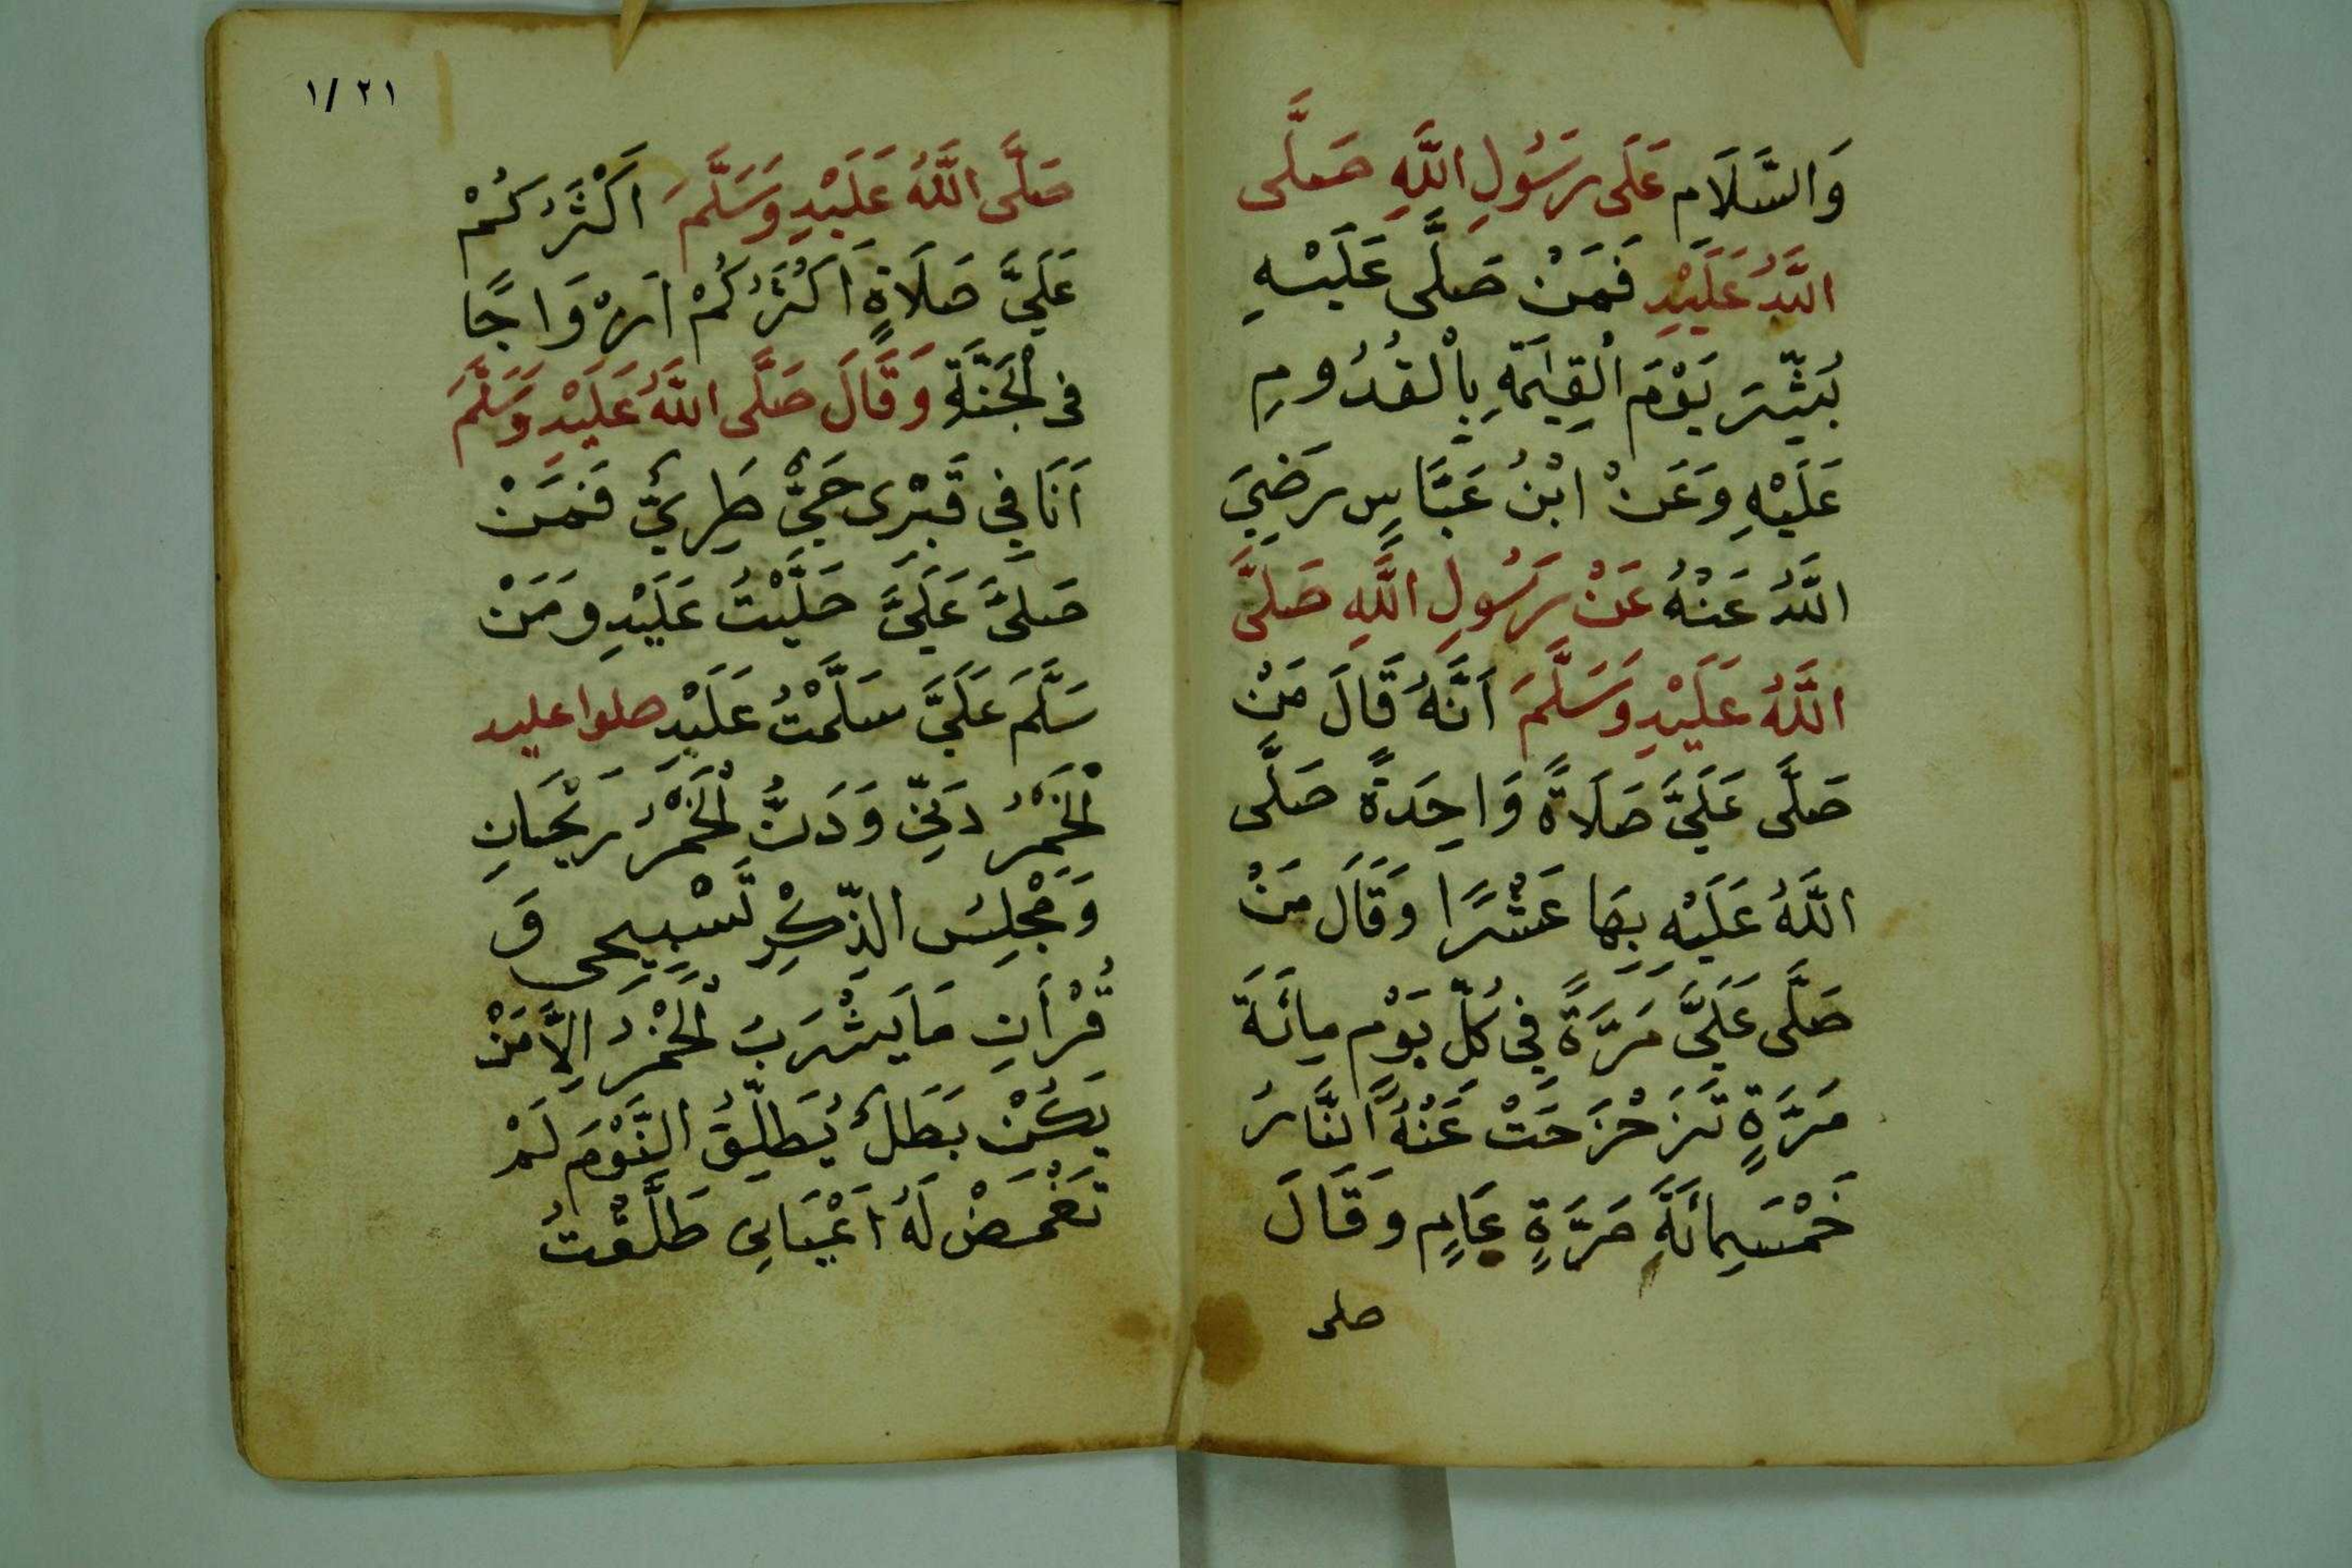 وَالسَّلَامِ عَلَى رَسُولِ اللَّهِ صَلَّى
اللَّهُ عَلَيْهِ فَمَنْ صَلَّى عَلَيْهِ
بُشِّرَ يَوْمَ الْقِيٰمَةِ بِالْقُدُومِ
عَلَيْهِ وَعَنْ ابْنُ عَبَّاسٍ رَضِيَ
اللَّهُ عَنْهُ عَنْ رَسُولِ اللَّهِ صَلَّى
اللَّهُ عَلَيْهِ وَسَلَّمَ اَنَّهُ قَالَ مَنْ
صَلَّى عَلَيَّ صَلَاةً وَاحِدَةً صَلَّى
اللَّهُ عَلَيْهِ بِهَا عَشْرًا وَقَالَ مَنْ
صَلَّى عَلَيَّ مَرَّةً فِي كُلِّ يَوْمٍ مِائَةَ
مَرَّةٍ تَزَحْزَحَتْ عَنْهُ النَّارُ
خَمْسَمِائَةَ مَرَّةٍ عَامٍ وَقَالَ
صلى
٢١ /١
صَلَّى اللَّهُ عَلَيْهِ وَسَلَّمَ اَكْثَرُكُمْ
عَلَيَّ صَلَاةٍ اَكْثَرُكُمْ اَزْوَاجًا
فِى الْجَنَّةِ وَقَالَ صَلَّى اللَّهُ عَلَيْهِ وَسَلَّمَ
اَنَا فِي قَبْرِى حَيٌّ طَرِيٌّ فَمَنْ
صَلَّىَ عَلَيَّ صَلَّيْتُ عَلَيْهِ وَمَنْ
سَلَّمَ عَلَيَّ سَلَّمْتُ عَلَيْهِ صلوا عليه
الْخَمْرُ دَنِّي وَدَنُّ الْخَمْرُ رَيْحَانِ
وَمَجْلِسُ الذِّكْرِ تَسْبِيحِى وَ
قُرْأَنِ مَا يَشْرَبَ الْخَمْرُ اِلَّا مَنْ
يَكُنْ بَطَلٌ يُطَلِّقُ النَّوْمَ لَمْ
تَغْمَضْ لَهُ اَعْيَانِى طَلَّقْتُ